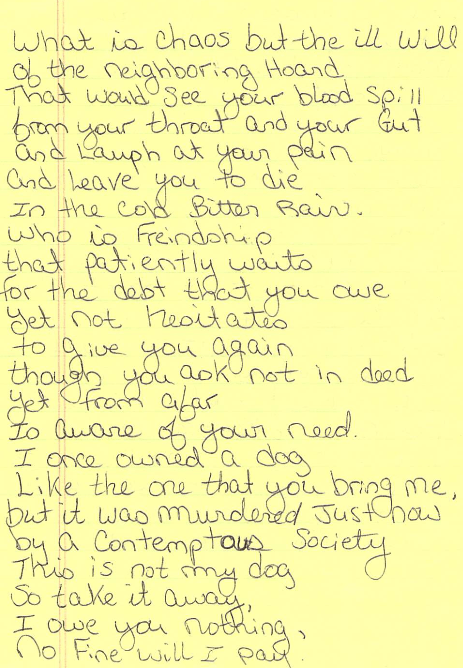 What is chaos but the ill will
of the neighboring Hoard
That would see your blood spill
from your throat and your Gut
and Laugh at your pain
and Leave you to die
In the cold Bitter Rain.
Who is Freindship
that patiently waits
for the debt that you owe
yet not hesitates
to give you again
though you ask not in deed
yet from afar
Is aware of your need.
I once owned a dog
Like the one that you bring me,
but it was murdered Just now
by a Contemptous Society
This is not my dog
So take it away,
I owe you nothing,
No Fine will I pay.